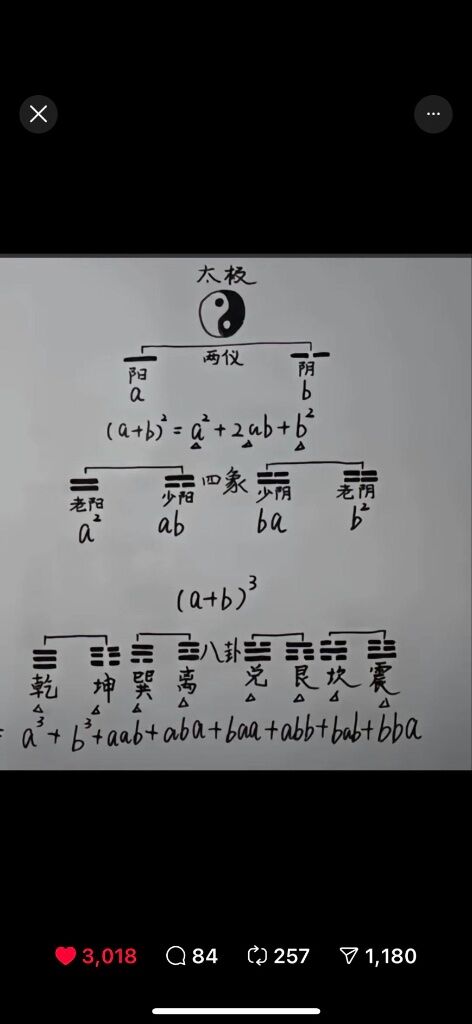 太极
两仪
阳 阴
a b
(a+b)² = a² + 2ab + b²
四象
老阳 少阳 少阴 老阴
a² ab ba b²
(a+b)³
八卦
乾 坤 巽 离 兑 艮 坎 震
= a³ + b³ + aab + aba + baa + abb + bab + bba
3,018 84 257 1,180